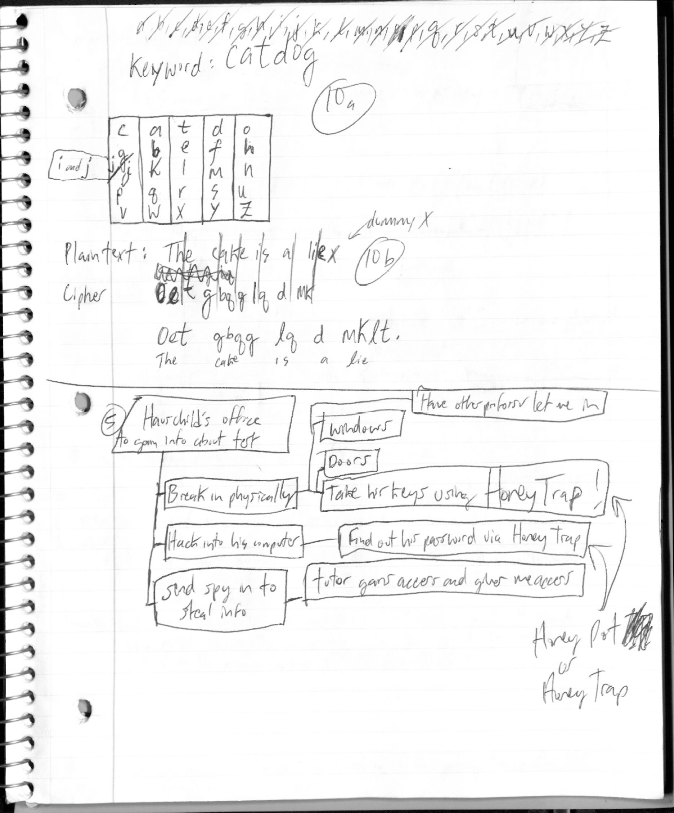 a, b, c, d, e, f, g, h, i, j, k, l, m, n, o, p, q, r, s, t, u, v, w, x, y, z
Keyword: catdog
10a
c a t d o
g b e f h
i and j
ij k l m n
p q r s u
v w x y z
dummy X
Plaintext: The cake is a liex
10b
Cipher Oet gbqg lq d mk
Oet gbqg lq d mklt.
The cake is a lie
5
Hauschild's office
to gain info about test
Have other professor let me in
windows
Doors
Break in physically
Take his keys using Honey Trap!
Hack into his computer
Find out his password via Honey Trap
Send spy in to
steal info
tutor gains access and gives me access
Honey Pot
or
Honey Trap